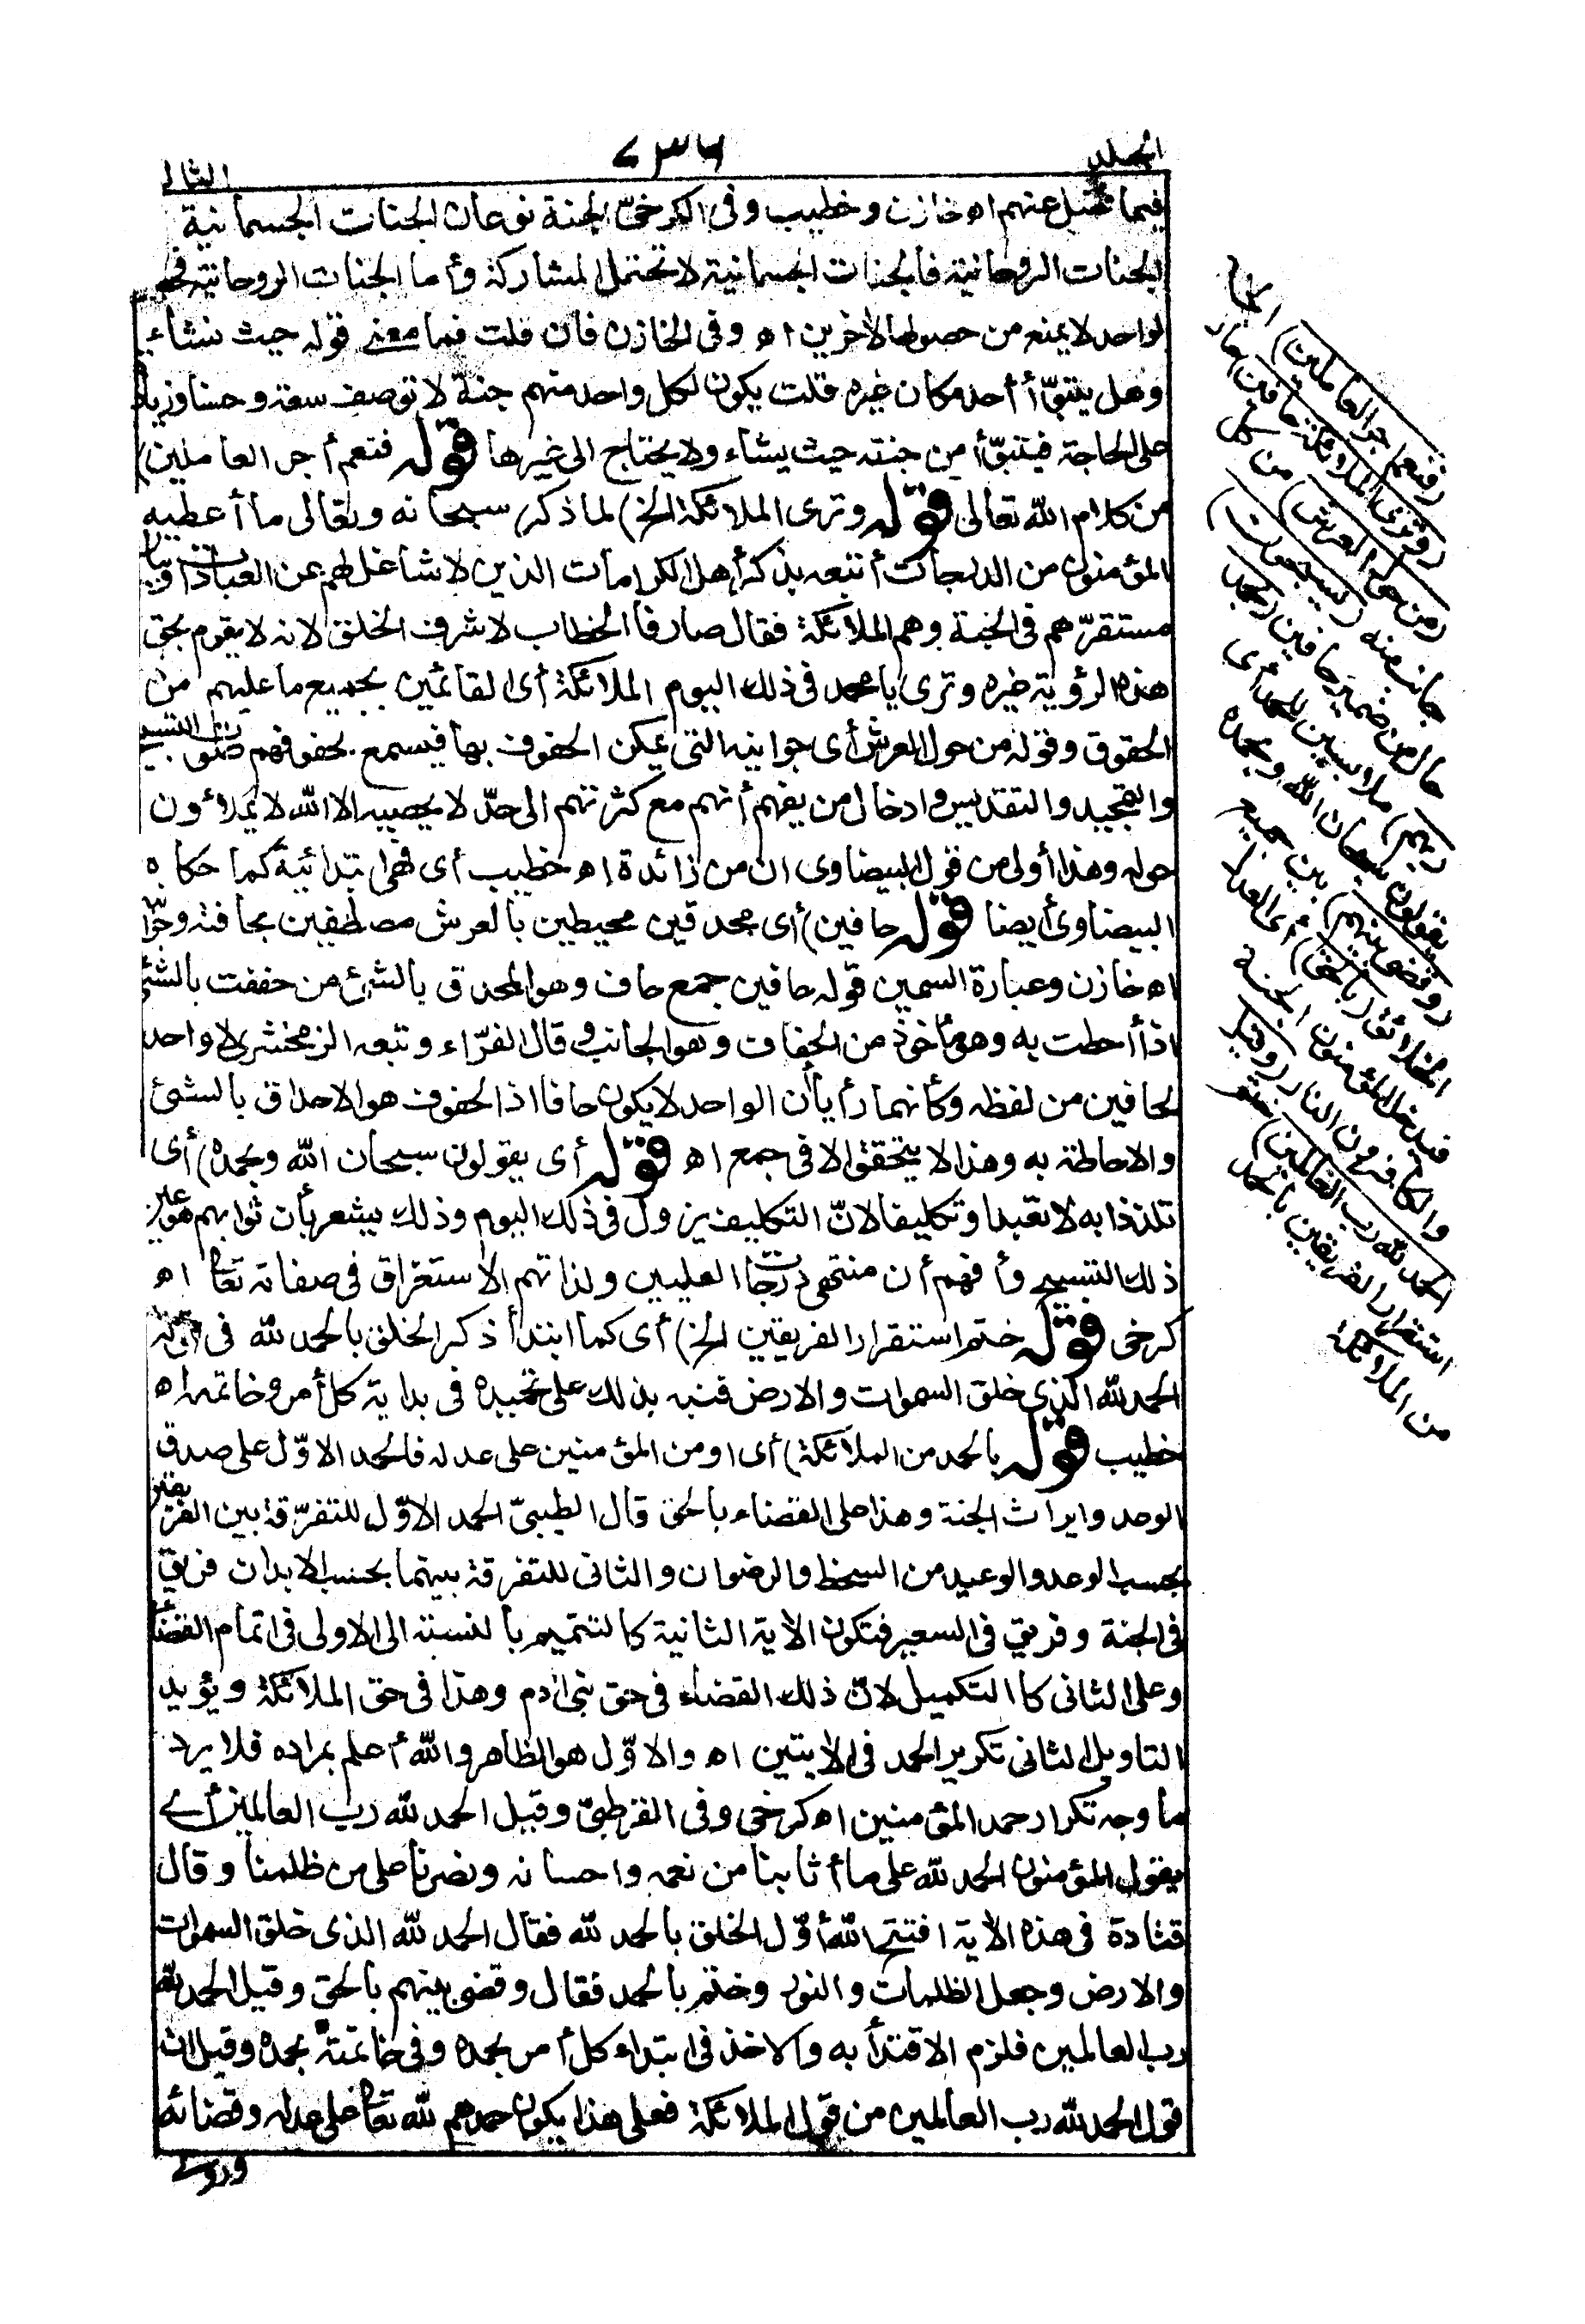 الجلد
٧٣٦
الثالث
فيما فضل عنهم اه خازن وخطيب وفى الكرخىّ الجنة نوعان الجنات الجسمانية
الجنات الروحانية فالجنات الجسمانية لا تحتمل المشاركة وأما الجنات الروحانية فحصولها
لواحد لا يمنع من حصولها لآخرين اه وفى الخازن فان قلت فما معنى قوله حيث نشاء
وهل يتبوّأ أحد مكان غيره قلت يكون لكل واحد منهم جنة لا توصف سعة وحسنا وزيادة
على الحاجة فيتبوّأ من جنته حيث يشاء ولا يحتاج الى غيرها قوله فنعم أجر العاملين)
من كلام الله تعالى قوله وترى الملائكة الخ) لما ذكر سبحانه وتعالى ما أعطيه
المؤمنون من الدرجات أتبعه بذكر أهل الكرامات الذين لا شاغل لهم عن العبادات
مستقرّهم فى الجنة وهم الملائكة فقال صارفا الخطاب لاشرف الخلق لانه لا يقوم بحق
هذه الرؤية غيره وترى يا محمد فى ذلك اليوم الملائكة أى القائمين بجميع ما عليهم من
الحقوق وقوله من حول العرش أى جوانبه التى يمكن الحفوف بها فيسمع لحفوفهم صوت التسبيح
والتمجيد والتقديس وادخال من يفهم أنهم مع كثرتهم الى حدّ لا يحصيه الا الله لا يملاؤن
حوله وهذا أولى من قول البيضاوى ان من زائدة اه خطيب أى فهى ابتدائية كما حكاه
البيضاوى أيضا قوله حافين) أى محدقين محيطين بالعرش مصطفين بحافته وجوانبه
اه خازن وعبارة السمين قوله حافين جمع حاف وهو المحدق بالشئ من حففت بالشئ
اذا أحطت به وهو مأخوذ من الحفاف وهو الجانب وقال الفرّاء وتبعه الزمخشرى لا واحد
لحافين من لفظه وكأنهما رأيا أن الواحد لا يكون حافا اذ الحفوف هو الاحداق بالشئ
والاحاطة به وهذا لا يتحقق الا فى جمع اه قوله أى يقولون سبحان الله وبحمده) أى
تلذذا به لا تعبدا وتكليفا لانّ التكليف يزول فى ذلك اليوم وذلك يشعر بأن ثوابهم هو عين
ذلك التسبيح وأفهم أن منتهى درجات العليين ولذاتهم الاستغراق فى صفاته تعالى اه
كرخى قوله ختم استقرار الفريقين الخ) أى كما ابتدأ ذكر الخلق بالحمد لله فى قوله
الحمد لله الذى خلق السموات والارض فنبه بذلك على تحميده فى بداية كل أمر وخاتمته اه
خطيب قوله بالحمد من الملائكة) أى او من المؤمنين على عدله فالحمد الاوّل على صدق
الوعد وايراث الجنة وهذا على القضاء بالحق قال الطيبىّ الحمد الاوّل للتفرّقة بين الفريقين
بحسب الوعد والوعيد من السخط والرضوان والثانى للتفرقة بينهما بحسب الابدان فريق
فى الجنة وفريق فى السعير فتكون الآية الثانية كالتتميم بالنسبة الى الاولى فى اتمام القضاء
وعلى الثانى كالتكميل لانّ ذلك القضاء فى حق بنى آدم وهذا فى حق الملائكة ويؤيد
التاويل الثانى تكرير الحمد فى الآيتين اه والاوّل هو الظاهر والله أعلم بمراده فلا يرد
ما وجه تكرار حمد المؤمنين اه كرخى وفى القرطبىّ وقيل الحمد لله رب العالمين أى
يقول المؤمنون الحمد لله على ما أثابنا من نعمه واحسانه ونصرنا على من ظلمنا وقال
قتادة فى هذه الآية افتتح الله أوّل الخلق بالحمد لله فقال الحمد لله الذى خلق السموات
والارض وجعل الظلمات والنور وختم بالحمد فقال وقضى بينهم بالحق وقيل الحمد لله
رب العالمين فلزم الاقتدأ به والاخذ فى ابتداء كل أمر بحمده وفى خاتمته بحمده وقيل ان
قول الحمد لله رب العالمين من قول الملائكة فعلى هذا يكون حمدهم لله تعالى على عدله وقضائه
وروى
(فنعم أجر العاملين) الجنة
(وترى الملائكة حافين) حال
(من حول العرش) من كل
جانب منه (يسبحون)
حال من ضمير حافين (بحمد
ربهم) ملابسين للحمد أى
يقولون سبحان الله وبحمده
(وقضى بينهم) بين جميع
الخلائق (بالحق) أى العدل
فيدخل المؤمنون الجنة
والكافرون النار (وقيل
الحمد لله رب العالمين) ختم
استقرار الفريقين بالحمد
من الملائكة